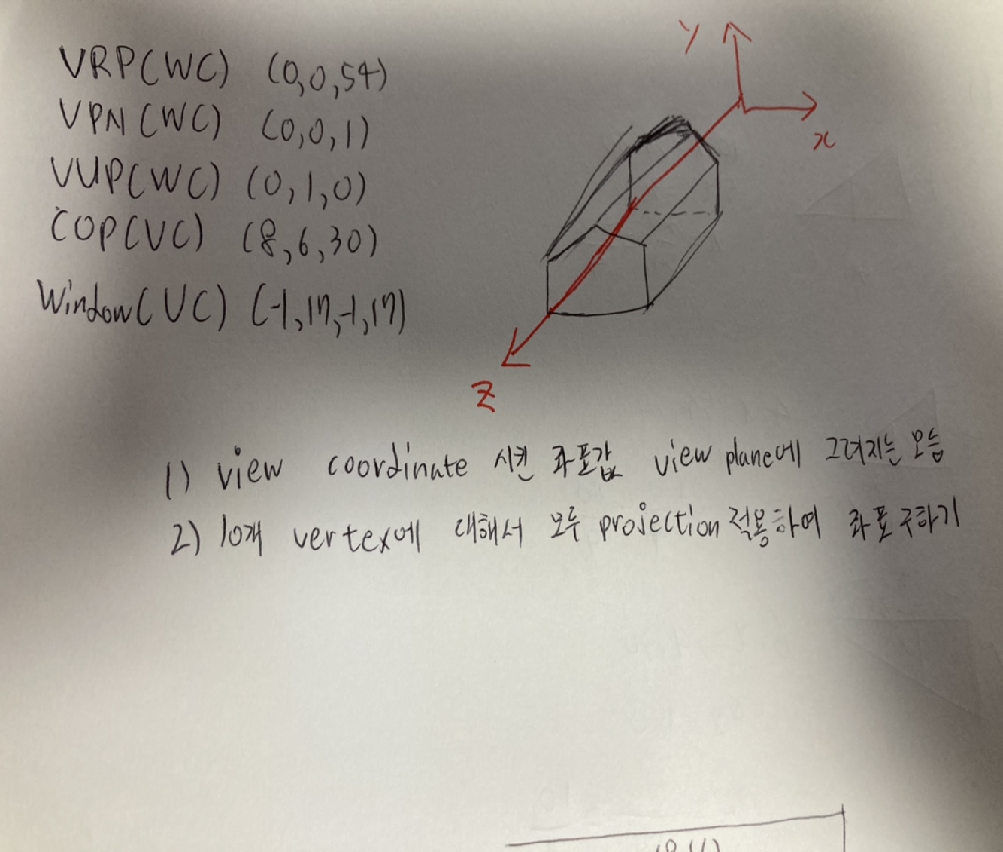 VRP(WC) (0,0,54)
VPN(WC) (0,0,1)
VUP(WC) (0,1,0)
COP(VC) (8,6,30)
Window(VC) (-1,17,-1,17)
y
x
z
1) view coordinate 시킨 좌표값 view plane에 그려지는 모습
2) 10개 vertex에 대해서 모두 projection 적용하여 좌표 구하기